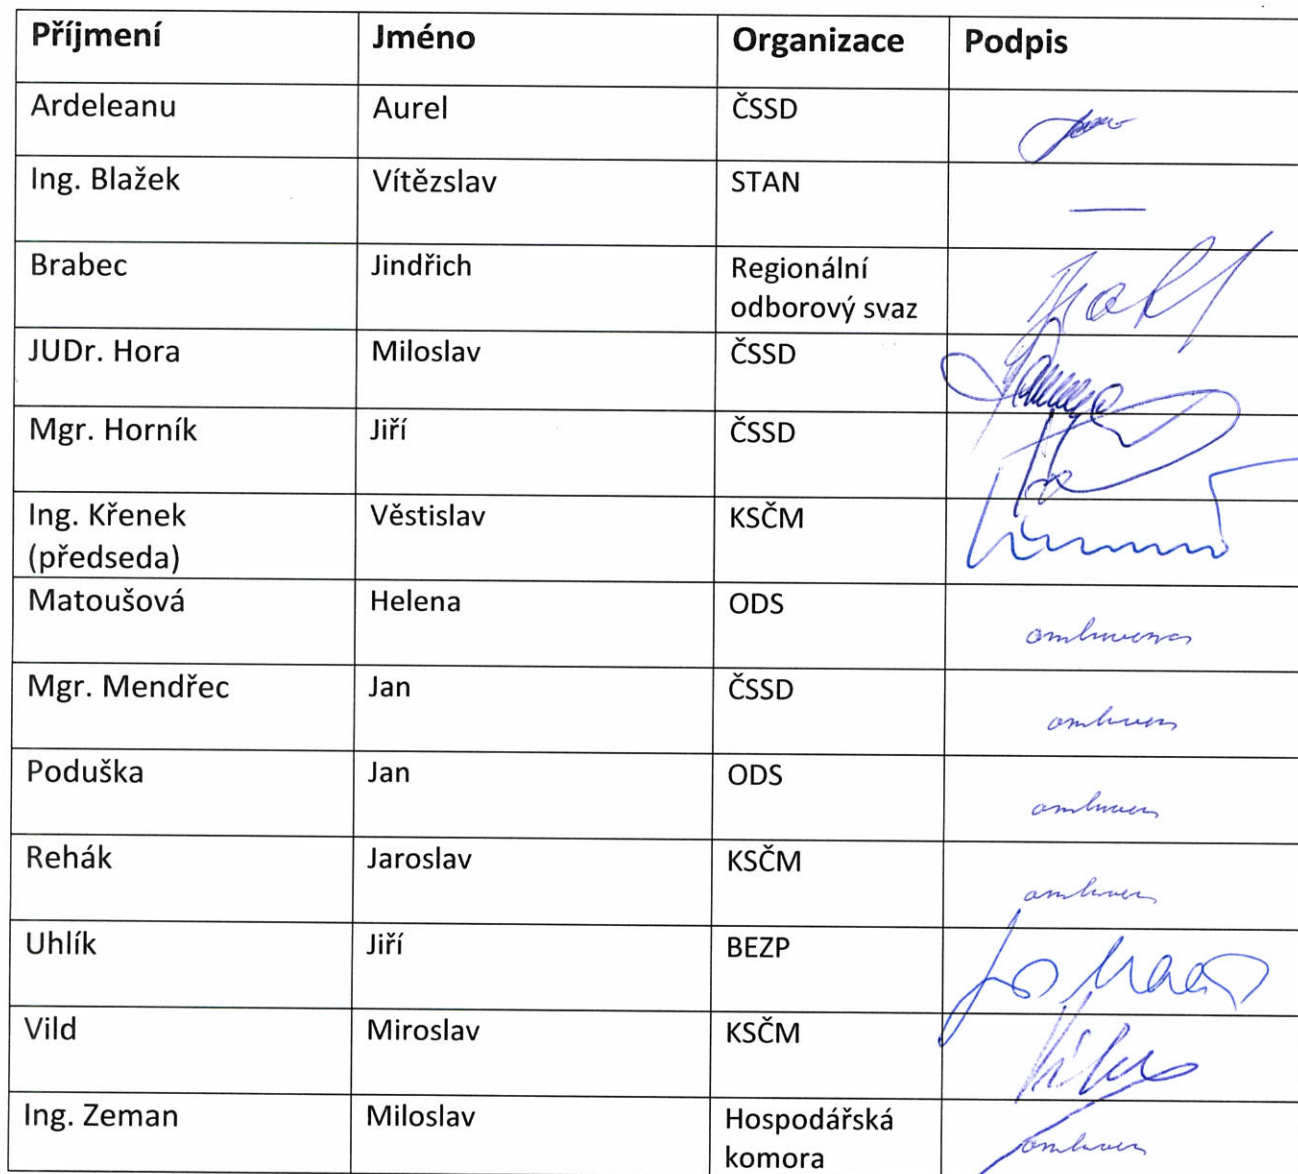 Příjmení Jméno Organizace Podpis
Ardeleanu Aurel ČSSD
Ing. Blažek Vítězslav STAN —
Brabec Jindřich Regionální
odborový svaz
JUDr. Hora Miloslav ČSSD
Mgr. Horník Jiří ČSSD
Ing. Křenek Věstislav KSČM
(předseda)
Matoušová Helena ODS omluvena
Mgr. Mendřec Jan ČSSD omluven
Poduška Jan ODS omluven
Rehák Jaroslav KSČM omluven
Uhlík Jiří BEZP
Vild Miroslav KSČM
Ing. Zeman Miloslav Hospodářská omluven
komora